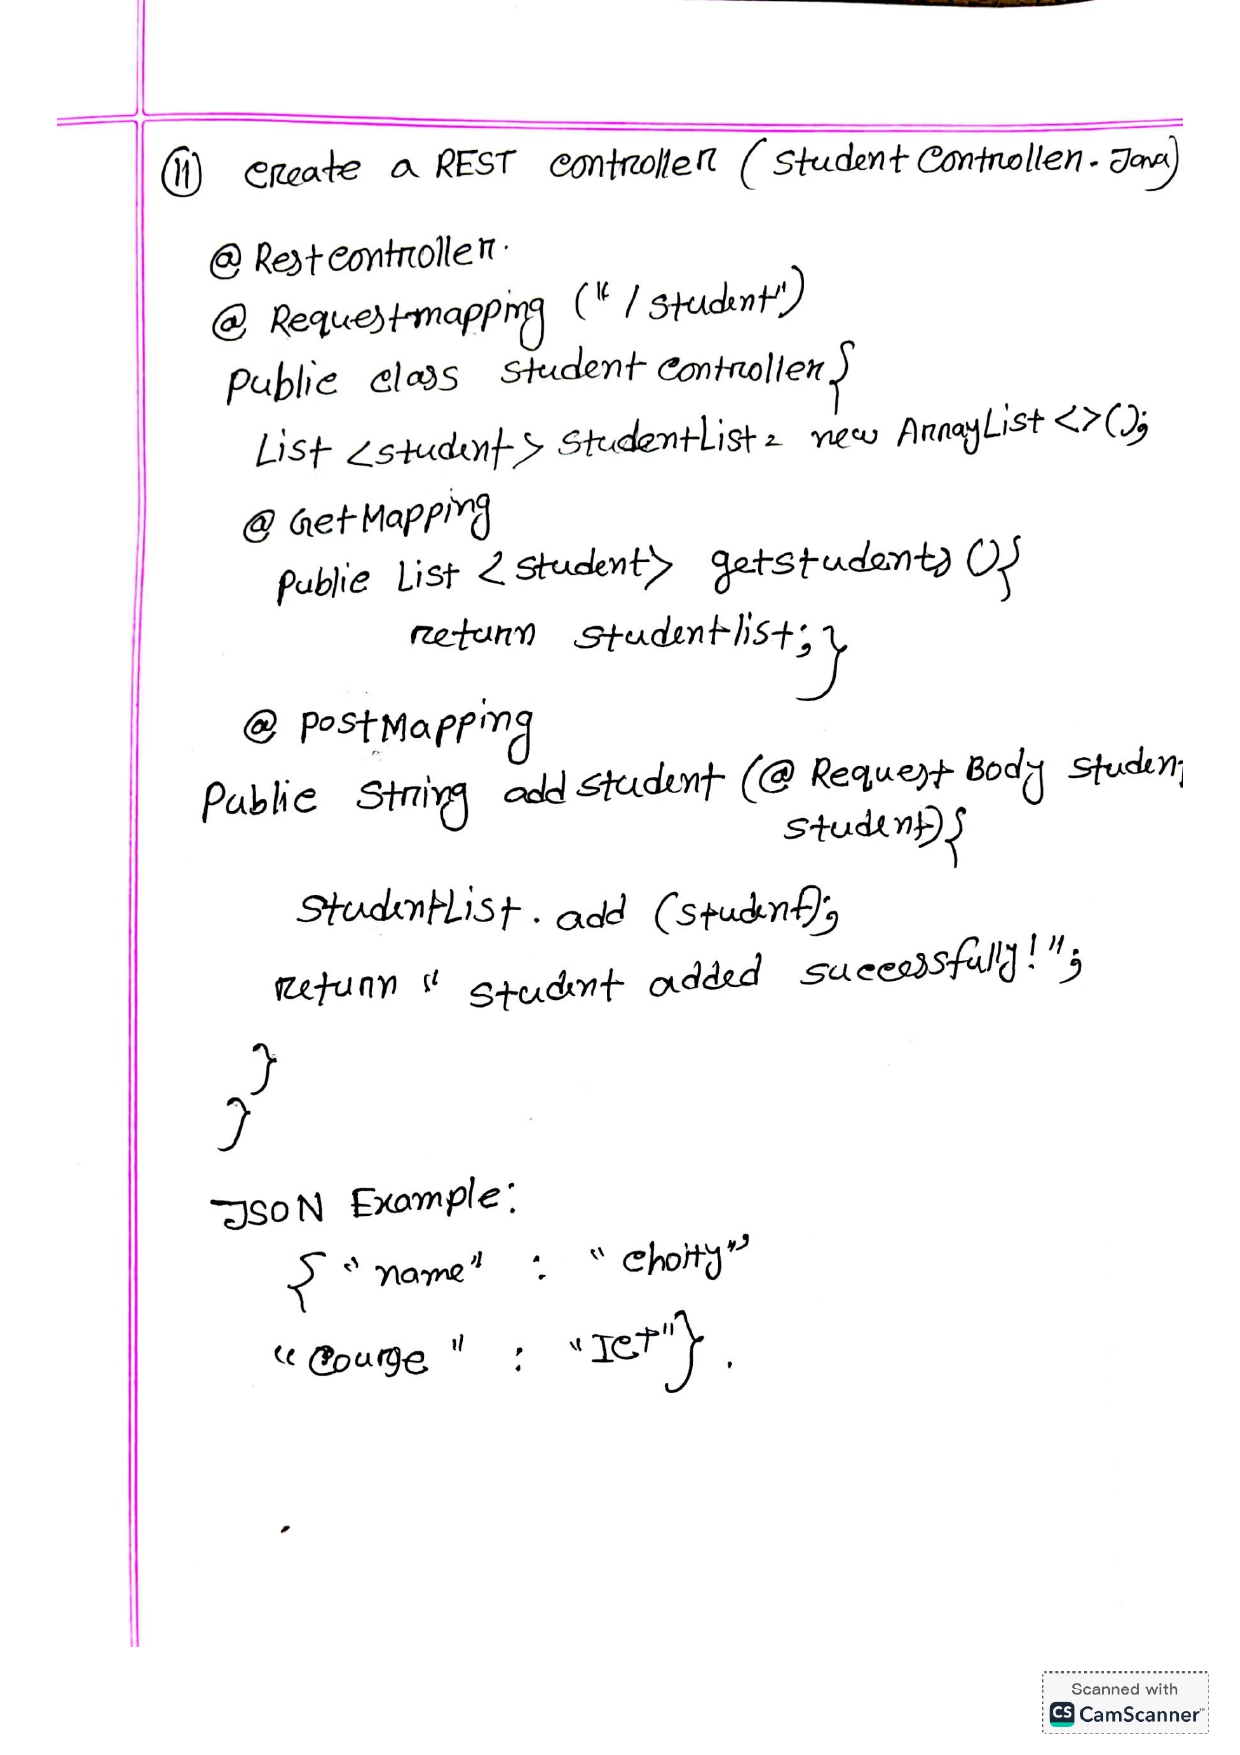 (11) create a REST controller (Student Controller. Java)
@ Restcontroller.
@ Requestmapping ("/student")
Public class student controller {
List <student> StudentList = new ArrayList <>();
@ GetMapping
Public List <student> getstudents () {
return studentlist; }
@ PostMapping
Public String add student (@ Request Body studen
student) {
studentList. add (student);
return " student added successfully! ";
}
}
JSON Example:
{ "name" : "choity",
"Course" : "ICT" } .
Scanned with
CS CamScanner